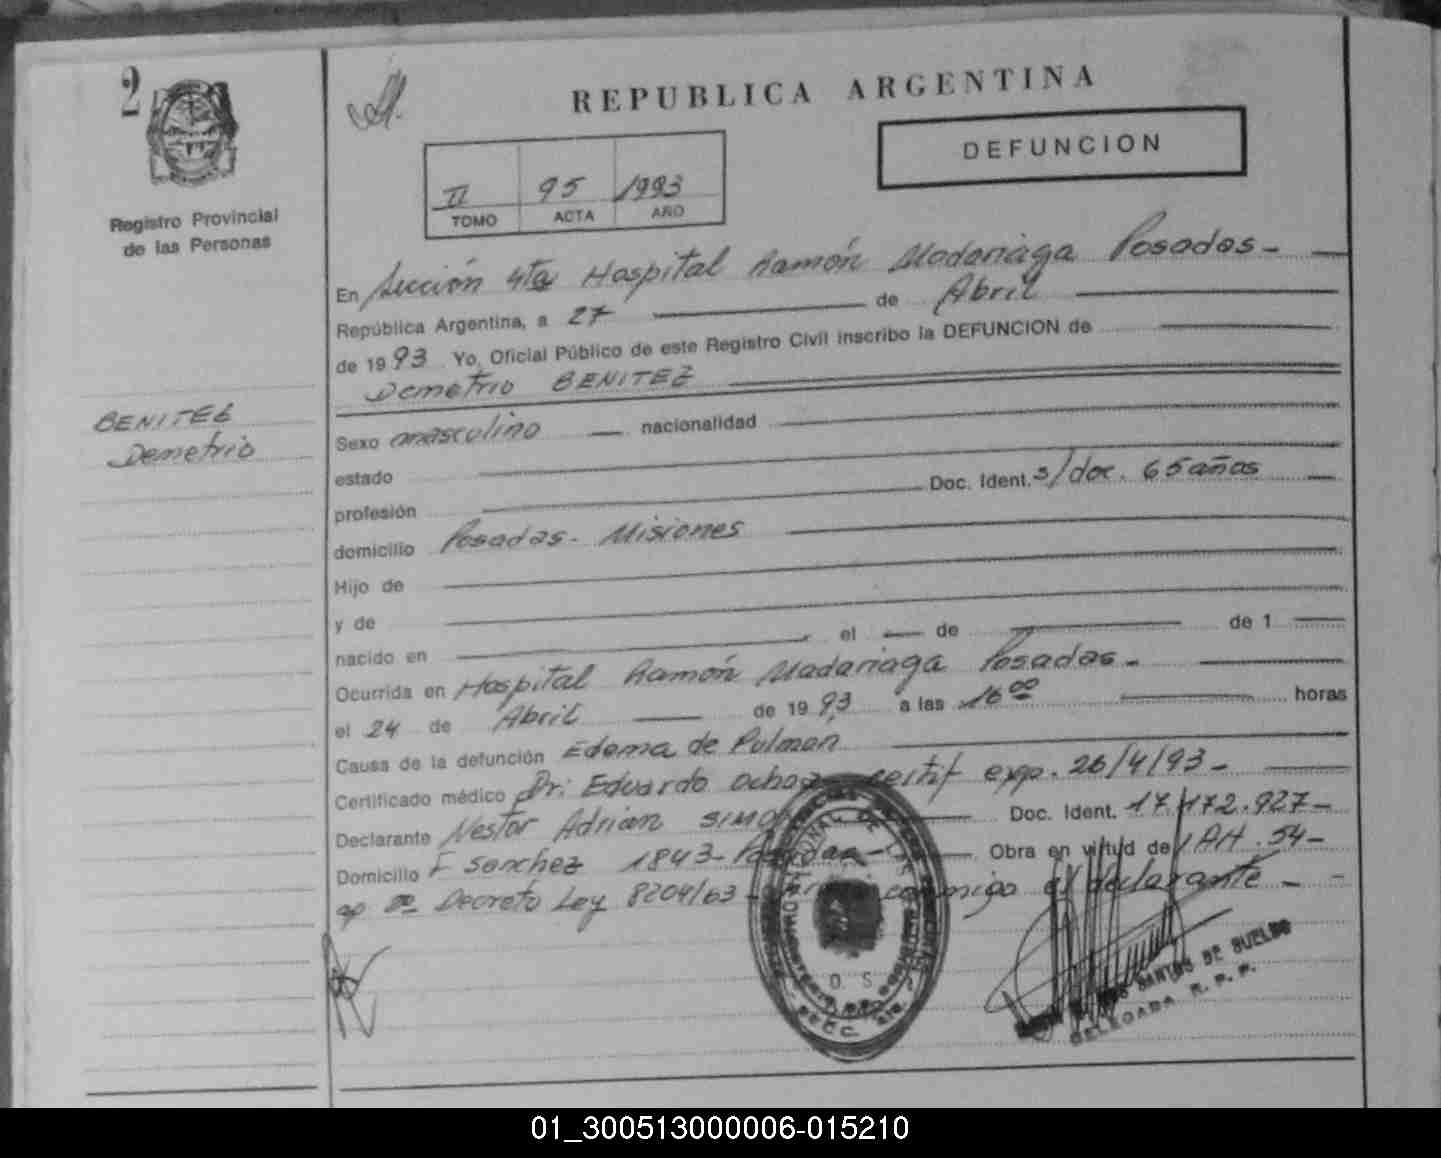 2
REPUBLICA ARGENTINA
DEFUNCION
II 95 1993
TOMO ACTA AÑO
Registro Provincial
de las Personas
BENITEZ
Demetrio
En Sección 4ta Hospital Ramón Madariaga Posadas -
República Argentina, a 27 de Abril
de 1993 Yo, Oficial Público de este Registro Civil inscribo la DEFUNCION de
Demetrio BENITEZ
Sexo masculino nacionalidad
estado
profesión Doc. Ident. s/doc. 65 años
domicilio Posadas - Misiones
Hijo de
y de
nacido en , el de de 1
Ocurrida en Hospital Ramón Madariaga Posadas -
el 24 de Abril de 1993 a las 16 00 horas
Causa de la defunción Edema de Pulmon
Certificado médico Dr: Eduardo Ochoa certif exp. 26/4/93 -
Declarante Nestor Adrian Doc. Ident. 17.172.927 -
Domicilio F Sanchez 1843 - Posadas - Obra en virtud de Art. 54 -
Decreto Ley 8204/63 - conmigo el declarante -
SANTOS DE BUELDO
DELEGADA R. P. P.
01_300513000006-015210